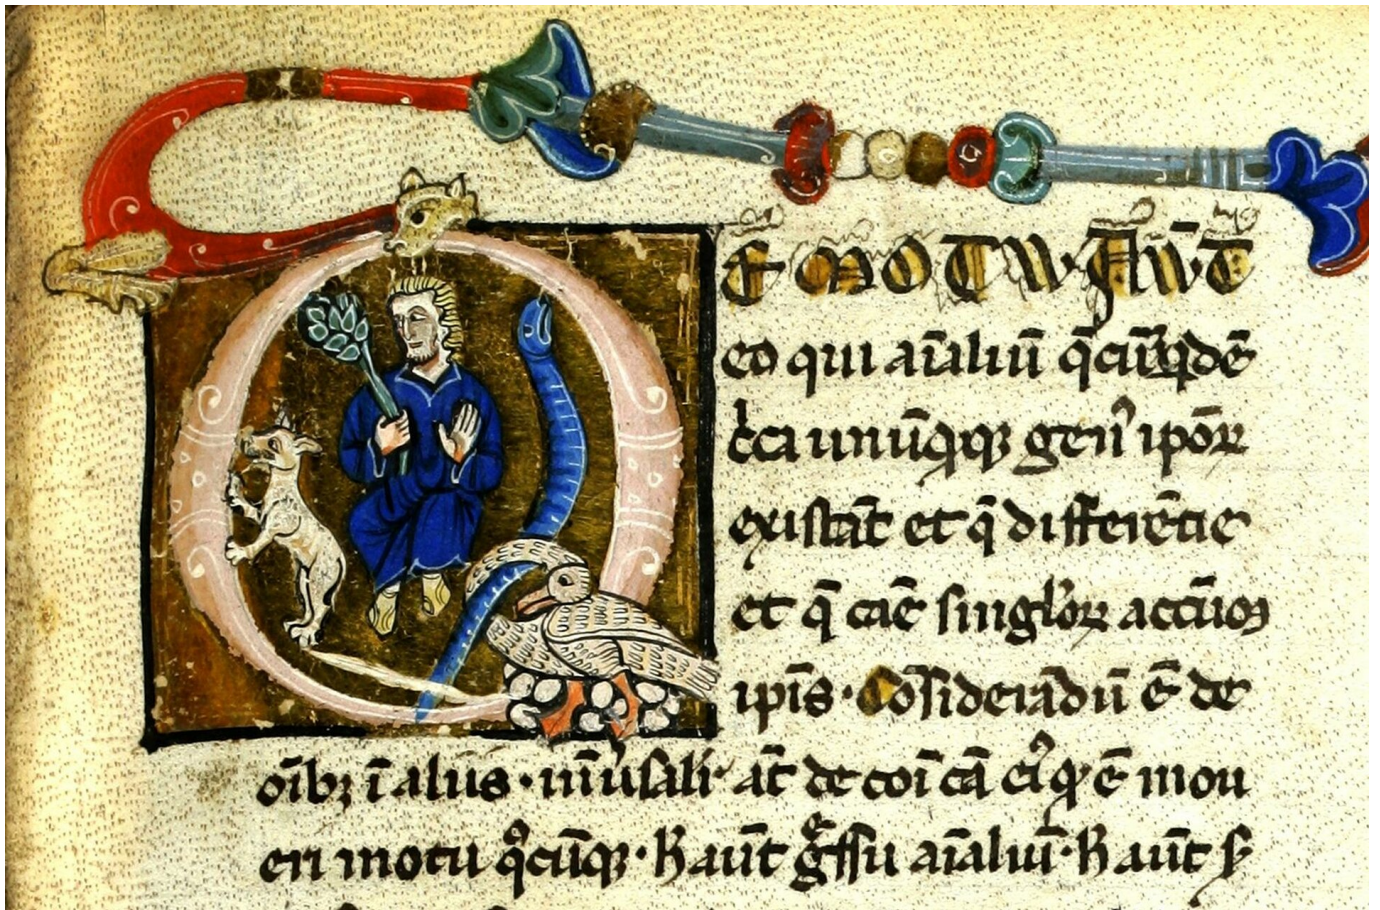 DE MOTU · AŪT̄
eo qui aīaliū q̄cūq; qdē
c̓ca unūq̄q; gen̓ ip̄oꝝ
existāt et q̄ differētie
et q̄ cāe singl̓oꝝ accñt̄
ip̄is · Cōsiderādū ē de
oībꝫ ī aliis · un̓uſali aūt de coī cā ei̓ qđ ē mou
eri motu q̊cūq; · h̄ aūt g̃ſſu aīaliū · h̄ aūt